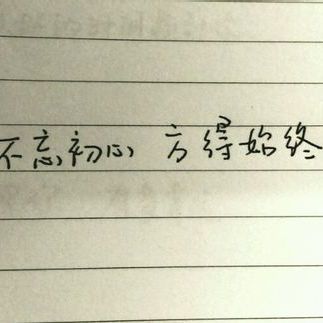 不忘初心 方得始终